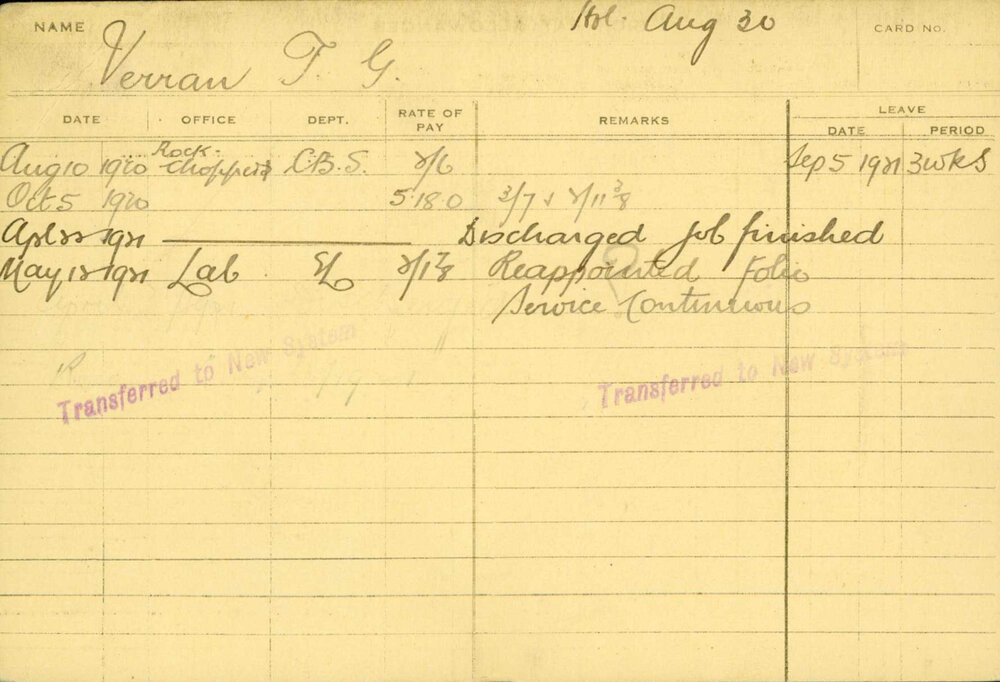 NAME Hol. Aug 30 CARD No.
Verran T. G.
DATE OFFICE DEPT. RATE OF PAY REMARKS LEAVE
DATE PERIOD
Aug 10 1920 Rock-choppers C.B.S. 2/6 Sep 5 1921 3wks
Oct 5 1920 5.18.0 2/11 3/8
Apl 22 1921 Discharged job finished
May 12 1921 Lab EL Reappointed Folio
Service Continuous
Transferred to New System Transferred to New System